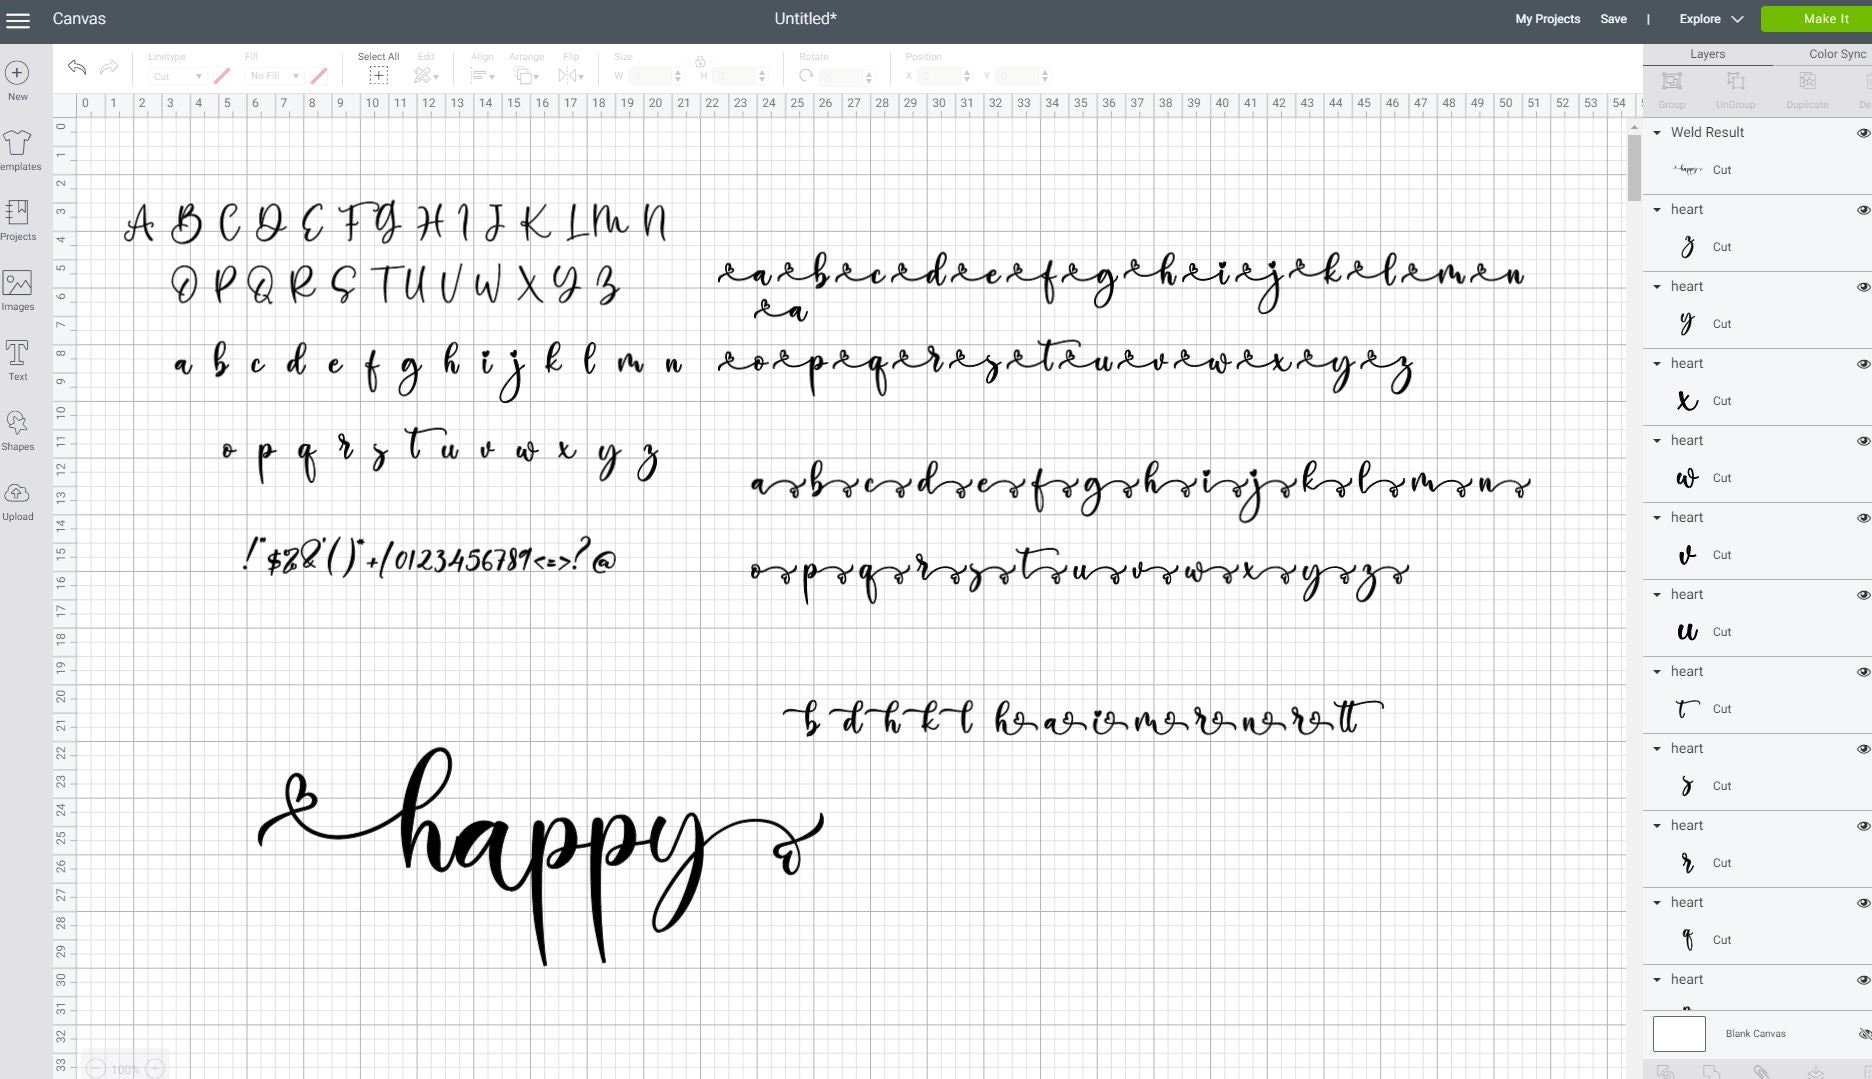 Canvas
Untitled*
My Projects Save | Explore Make It
New
Templates
Projects
Images
Text
Shapes
Upload
Linetype
Cut
Fill
No Fill
Select All
Edit
Align
Arrange
Flip
Size
W 0 H 0
Rotate
0
Position
X 0 Y 0
0 1 2 3 4 5 6 7 8 9 10 11 12 13 14 15 16 17 18 19 20 21 22 23 24 25 26 27 28 29 30 31 32 33 34 35 36 37 38 39 40 41 42 43 44 45 46 47 48 49 50 51 52 53 54
0
1
2
3
4
5
6
7
8
9
10
11
12
13
14
15
16
17
18
19
20
21
22
23
24
25
26
27
28
29
30
31
32
33
A B C D E F G H I J K L M N
O P Q R S T U V W X Y Z
a b c d e f g h i j k l m n
o p q r s t u v w x y z
!"$%&'()*+/0123456789<=>?@
a b c d e f g h i j k l m n
a
o p q r s t u v w x y z
a b c d e f g h i j k l m n
o p q r s t u v w x y z
b d h k l h a i m r n r tt
happy
100%
Layers Color Sync
Group UnGroup Duplicate
Weld Result
happy Cut
heart
z Cut
heart
y Cut
heart
x Cut
heart
w Cut
heart
v Cut
heart
u Cut
heart
t Cut
heart
s Cut
heart
r Cut
heart
q Cut
heart
Blank Canvas